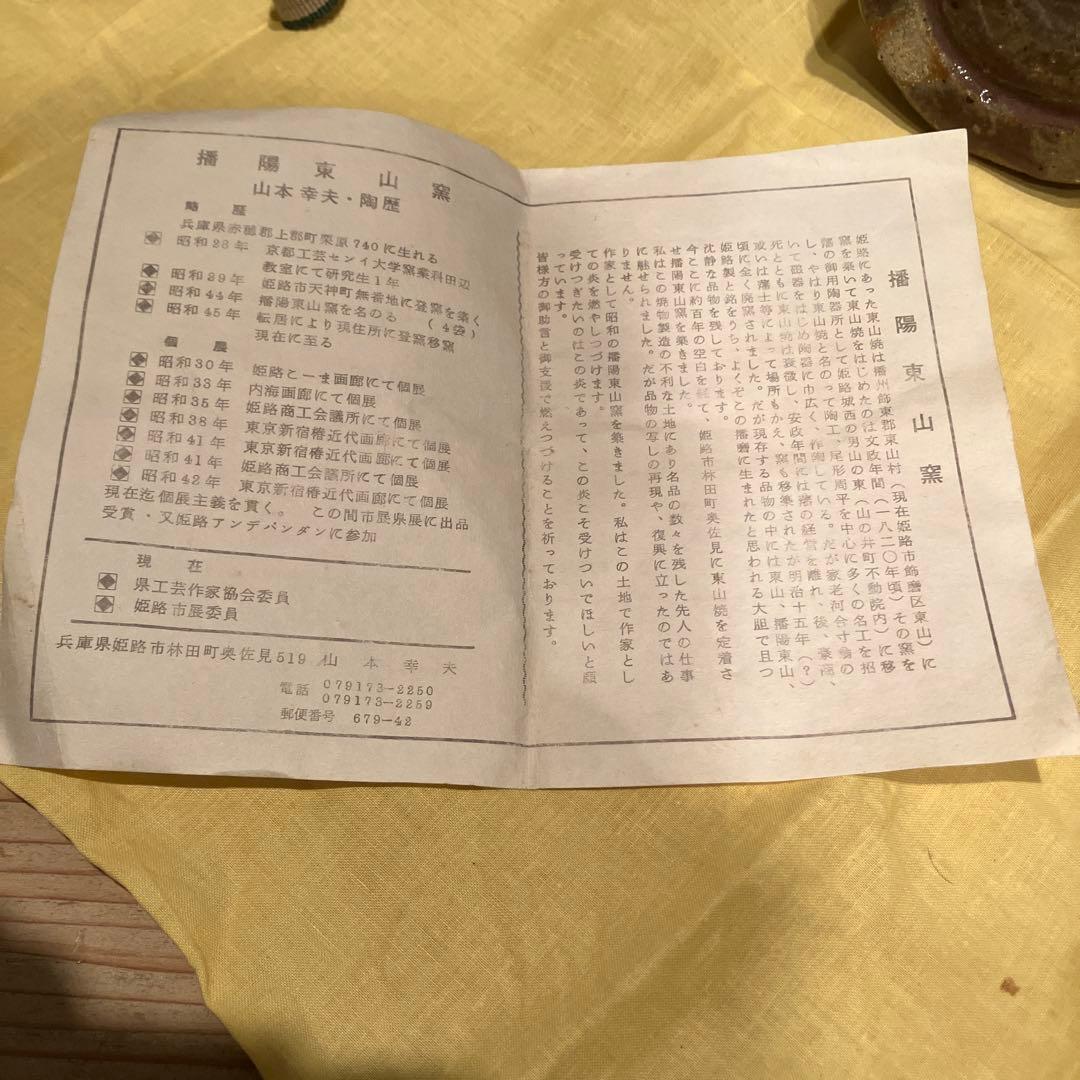 播陽東山窯
山本幸夫・陶歴
略歴
兵庫県赤穂郡上郡町栗原740に生れる
昭和28年 京都工芸センイ大学窯業科田辺
教室にて研究生1年
昭和39年 姫路市天神町無番地に登窯を築く
昭和44年 播陽東山窯を名のる (4袋)
昭和45年 転居により現住所に登窯移窯
現在に至る
個展
昭和30年 姫路こーま画廊にて個展
昭和33年 内海画廊にて個展
昭和35年 姫路商工会議所にて個展
昭和38年 東京新宿椿近代画廊にて個展
昭和41年 東京新宿椿近代画廊にて個展
昭和41年 姫路商工会議所にて個展
昭和42年 東京新宿椿近代画廊にて個展
現在迄個展主義を貫く。 この間市展県展に出品
受賞・又姫路アンデパンダンに参加
現在
県工芸作家協会委員
姫路市展委員
兵庫県姫路市林田町奥佐見519 山本幸夫
電話 079173-2250
079173-2259
郵便番号 679-42
播陽東山窯
姫路にあった東山焼は播州飾東郡東山村(現在姫路市飾磨区東山)に
窯を築いて東山焼をはじめたのは文政年間(一八二〇年頃)その窯を
藩の御用陶器所として姫路城西の男山の東(山の井町不動院内)に移
し、やはり東山焼と名のって陶工、尾形周平を中心に多くの名工を招
いて磁器をはじめ陶器に巾広く、作陶している。だが家老河合寸翁の
死とともに東山焼は衰微し、安政年間には藩の経営を離れ、後、豪商、
或いは藩士等によって場所もかえ、窯も移築されたが明治十五年(?)
頃に全く廃窯されました。だが現存する品物の中には東山、播陽東山、
姫路製と銘をうち、よくぞこの播磨に生まれたと思われる大胆で且つ
沈静な品物を残しております。
今ここに約百年の空白を経て、姫路市林田町奥佐見に東山焼を定着さ
せ播陽東山窯を築きました。
私はこの焼物製造の不利な土地にあり名品の数々を残した先人の仕事
に魅せられました。だが品物の写しの再現や、復興に立ったのではあ
りません。
作家として昭和の播陽東山窯を築きました。私はこの土地で作家とし
ての炎を燃やしつづけます。
受けつぎたいのはこの炎であって、この炎こそ受けついでほしいと願
っています。
皆様方の御助言と御支援で燃えつづけることを祈っております。